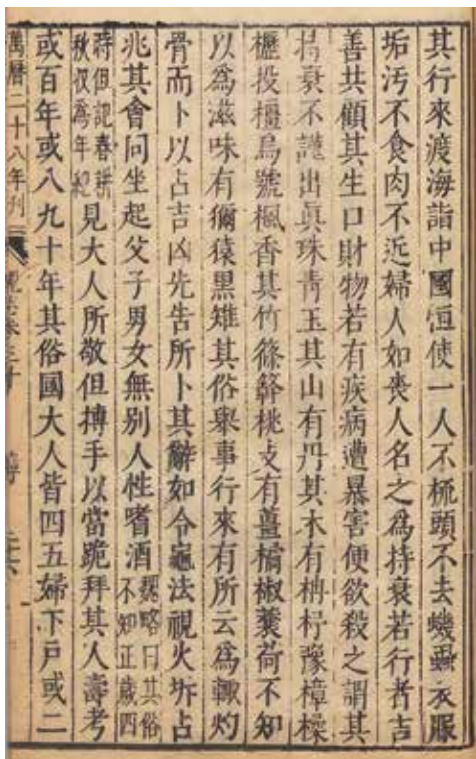 其行來渡海詣中國恒使一人不梳頭不去蟣蝨衣服
垢汚不食肉不近婦人如喪人名之爲持衰若行者吉
善共顧其生口財物若有疾病遭暴害便欲殺之謂其
持衰不謹出眞珠青玉其山有丹其木有枏杼豫樟楺
櫪投橿烏號楓香其竹篠簳桃支有薑橘椒蘘荷不知
以爲滋味有獮猿黑雉其俗舉事行來有所云爲輒灼
骨而卜以占吉凶先告所卜其辭如令龜法視火坼占
兆其會同坐起父子男女無別人性嗜酒
魏略曰其俗
不知正歲四
時但記春耕
秋収爲年紀
見大人所敬但搏手以當跪拜其人壽考
或百年或八九十年其俗國大人皆四五婦下戸或二
萬曆二十八年刊
魏志卷三十